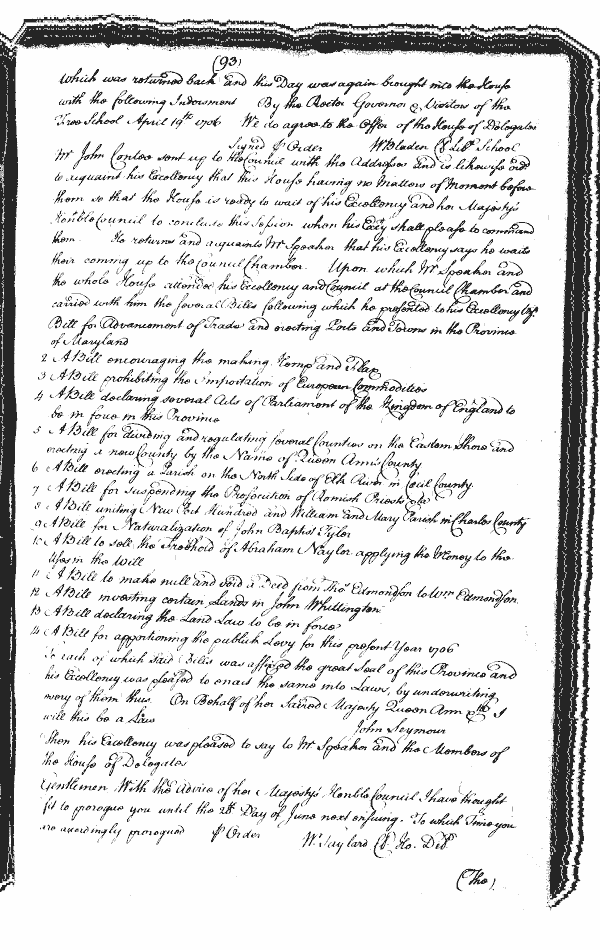 (93)
which was returned back and this Day was again brought into the House
with the following Indorsment By the Rector Governors & Visitors of the
Free School April 19th 1706 We do agree to the Offer of the House of Delegates
Signed p Order W Bladen Cl Lib School
Mr John Contee sent up to the Council with the Address and is likewise ord
to acquaint his Excellency that this House having no Matters of Moment before
them so that the House is ready to wait of his Excellency and her Majestys
Honble Council to conclude this Session when his Excy shall please to command
them. He returns and acquaints Mr Speaker that his Excellency says he waits
their coming up to the Council Chamber. Upon which Mr Speaker and
the whole House attended his Excellency and Council at the Council Chamber and
carried with him the severall Bills following which he presented to his Excellency
Bill for Advancement of Trade and erecting Ports and Towns in the Province
of Maryland
2 A Bill encouraging the making Hemp and Flax
3 A Bill prohibiting the Importation of European Commodities
4 A Bill declaring several Acts of Parliament of the Kingdom of England to
be in force in this Province
5 A Bill for dividing and regulating several Counties on the Eastern Shore and
erecting a new County by the Name of Queen Anns County
6 A Bill erecting a Parish on the North Side of Elk River in Cecil County
7 A Bill for suspending the Prosecution of Romish Priests &ca
8 A Bill uniting New Port Hundred and William and Mary Parish in Charles County
9 A Bill for Naturalization of John Baptist Tyler
10 A Bill to sell the Freehold of Abraham Naylor applying the Money to the
Uses in the Will
11 A Bill to make null and void a Deed from Thos Edmondson to Wm Edmondson
12 A Bill investing certain Lands in John Whittington
13 A Bill declaring the Land Law to be in force
14 A Bill for apportioning the publick Levy for this present Year 1706
To each of which said Bills was affixed the great Seal of this Province and
his Excellency was pleased to enact the same into Laws, by underwriting
every of them thus. On Behalf of her Sacred Majesty Queen Ann &ca I
will this be a Law
John Seymour
Then his Excellency was pleased to say to Mr Speaker and the Members of
the House of Delegates
Gentlemen With the Advice of her Majestys Honble Council I have thought
fit to prorogue you until the Day of June next ensuing. To which Time you
are accordingly prorogued p Order W Taylard Cl Ho. Del
(The)